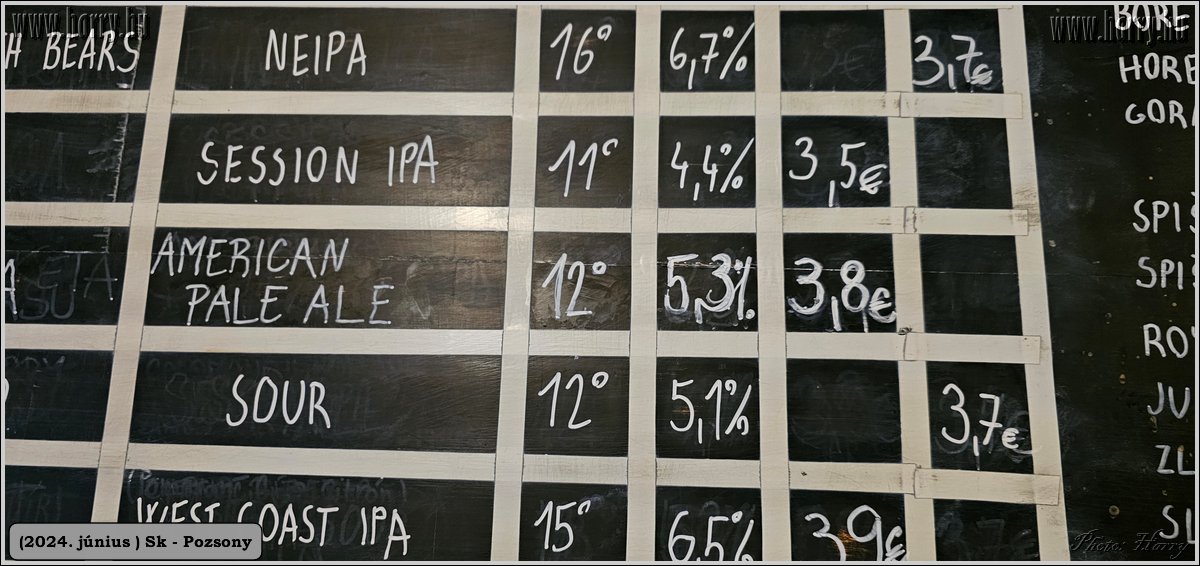 www.horry.hu
www.horry.hu
H BEARS NEIPA 16° 6,7% 3,7€
SESSION IPA 11° 4,4% 3,5€
AMERICAN
PALE ALE 12° 5,3% 3,8€
SOUR 12° 5,1% 3,7€
WEST COAST IPA 15° 6,5% 3,9€
BORE
HORE
GOR
SPIŠ
SPI
RO
JU
ZL
SL
(2024. június ) Sk - Pozsony
Photo: Horry